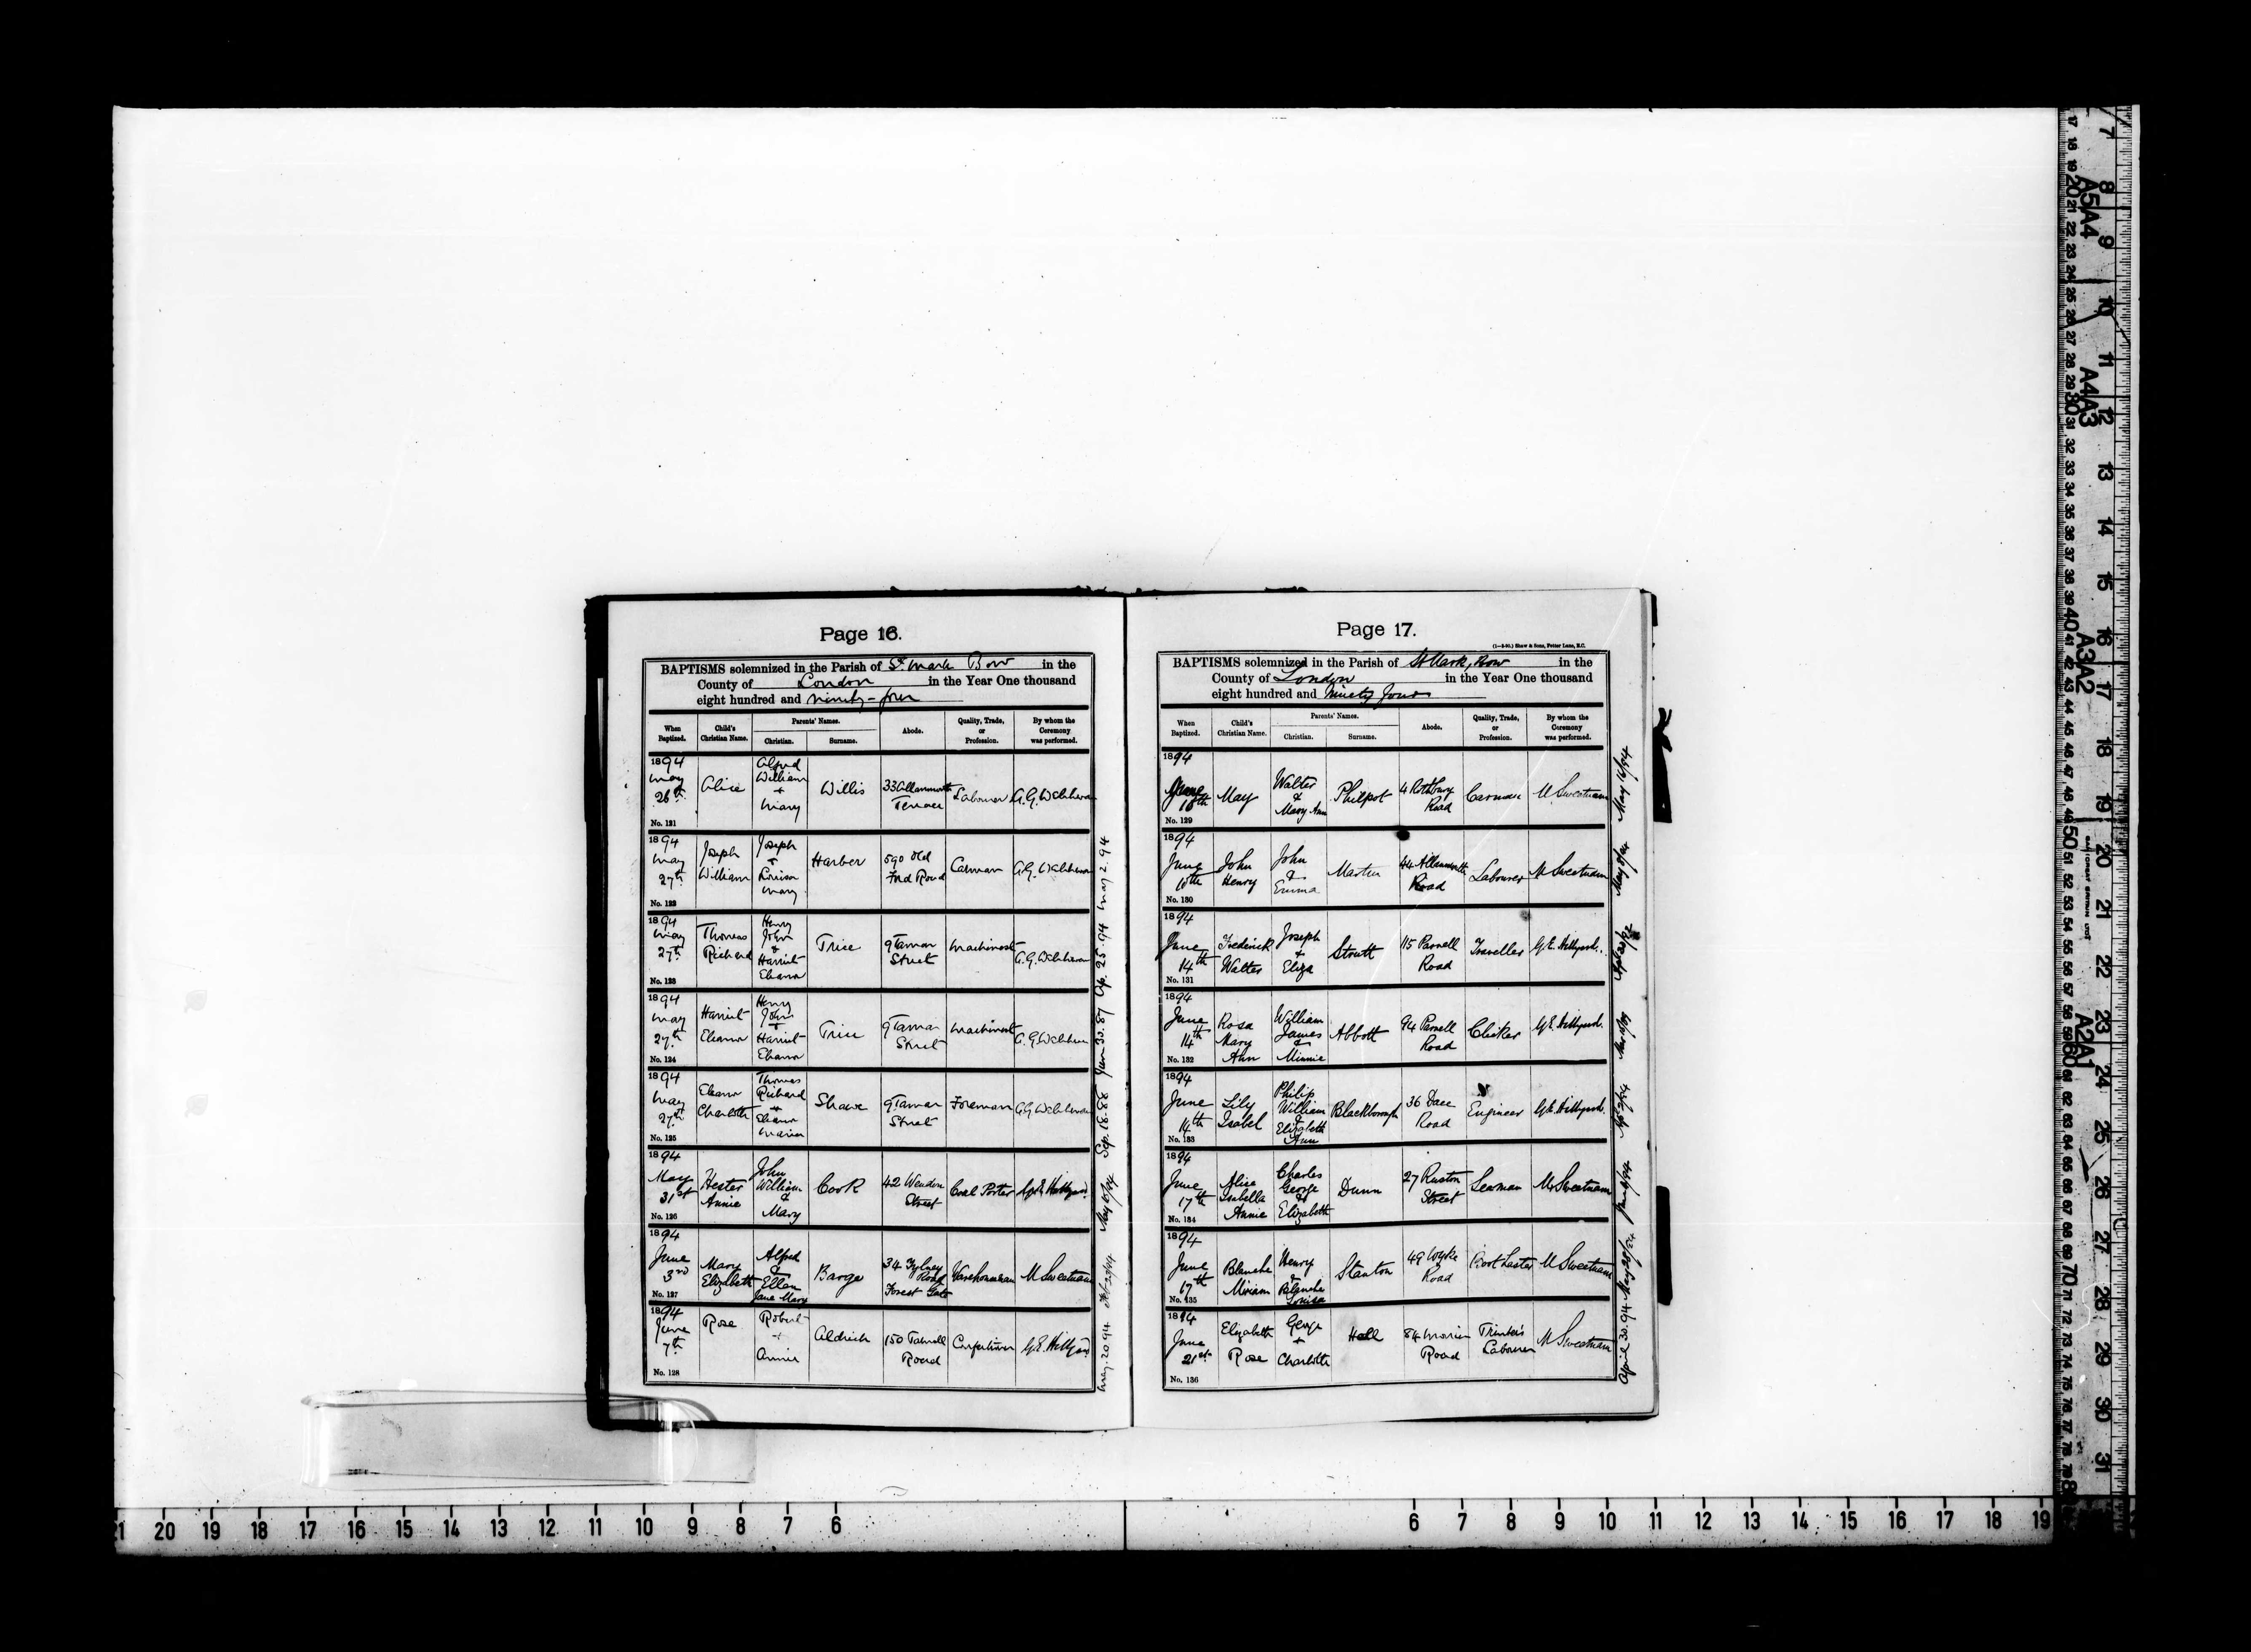 Page 16.
BAPTISMS solemnized in the Parish of St. Mark Bow in the
County of London in the Year One thousand
eight hundred and ninety-four
When Baptized. Child's Christian Name. Parents' Names. Christian. Surname. Abode. Quality, Trade, or Profession. By whom the Ceremony was performed.
1894 May 26th Alice Alfred William + Mary Willis 33 Allanmouth Terrace Labourer
No. 121
1894 May 27th Joseph William Joseph + Louisa Mary Harber 590 Old Ford Road Carman
No. 122
1894 May 27th Thomas Richard Henry John & Harriet Eleanor Trice 9 Tamar Street Machinist
No. 123
1894 May 27th Harriet Eleanor Henry John + Harriet Eleanor Trice 9 Tamar Street Machinist
No. 124
1894 May 27th Eleanor Charlotte Thomas Richard + Eleanor Maria Shave 9 Tamar Street Foreman
No. 125
1894 May 31st Hester Annie John William & Mary Cook 42 Wendon Street Coal Porter
No. 126
1894 June 3rd Mary Elizabeth Alfred & Ellen Jane Mary Barge 34 Tylney Road Forest Gate Warehouseman M Sweetnam
No. 127
1894 June 7th Rose Robert + Annie Aldrich 150 Road
No. 128
May. 20. 94 May 6/94 Sep. 18. 88 June 30. 87 Ap. 25. 94 May 2. 94
Page 17.
(1—8-90.) Shaw & Sons, Fetter Lane, E.C.
BAPTISMS solemnized in the Parish of St Mark, Bow in the
County of London in the Year One thousand
eight hundred and Ninety four
When Baptized. Child's Christian Name. Parents' Names. Christian. Surname. Abode. Quality, Trade, or Profession. By whom the Ceremony was performed.
1894 June 10th May Walter & Mary Ann Philpot 4 Rothbury Road Carman M Sweetnam
No. 129
1894 June 10th John Henry John & Emma Martin 44 Allanmouth Road Labourer M Sweetnam
No. 130
1894 June 14th Frederick Walter Joseph + Eliza Strutt 115 Parnell Road Traveller
No. 131
1894 June 14th Rosa Mary Ann William James & Minnie Abbott 94 Parnell Road Clicker
No. 132
1894 June 14th Lily Isabel Philip William & Elizabeth Ann Blackborough 36 Dace Road Engineer
No. 133
1894 June 17th Alice Isabella Annie Charles George & Elizabeth Dunn 27 Ruston Street Seaman M Sweetnam
No. 134
1894 June 17th Blanche Miriam Henry & Blanche Louisa Stanton 49 Wyke Road M Sweetnam
No. 135
1894 June 21st Elizabeth Rose George + Charlotte Hall 84 Road Printer's Labourer M Sweetnam
No. 136
April 30. 94